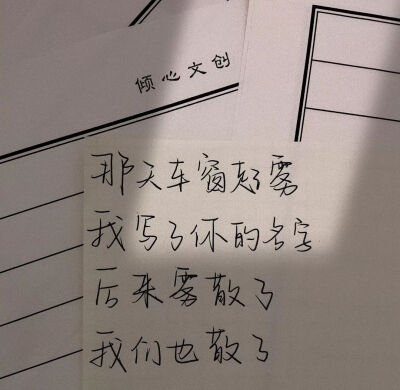 倾心文创
那天车窗起雾
我写了你的名字
后来雾散了
我们也散了